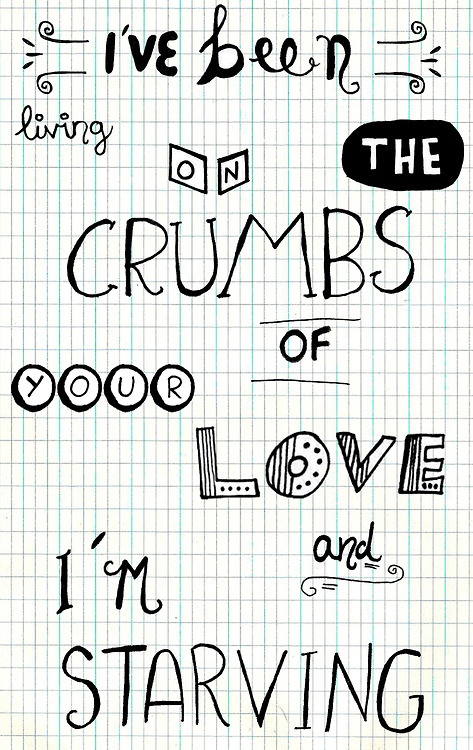 I'VE been
living
ON THE
CRUMBS
OF
YOUR
LOVE
and
I'M
STARVING